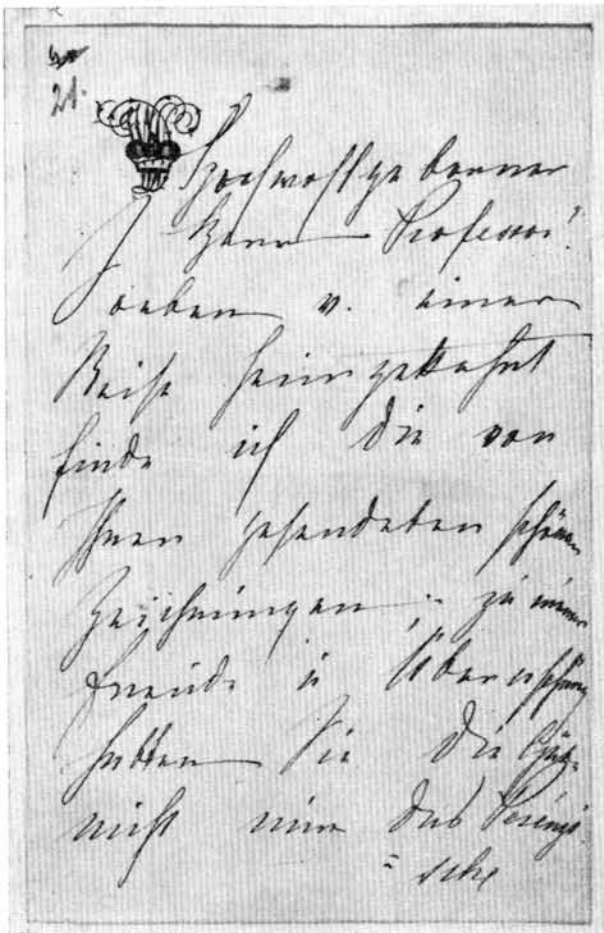 21.
Hochwohlgeborner
Herr Professor!
Soeben v. einer
Reise heimgekehrt
finde ich die von
Ihnen gesendeten schönen
Zeichnungen; zu meiner
Freude u Überraschung
hatten Sie die Güte
nicht nur das